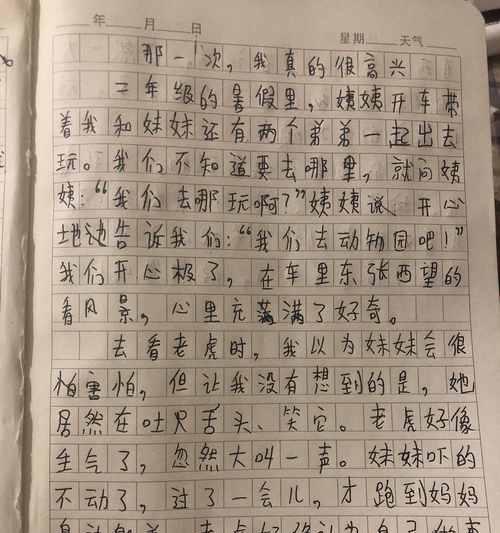 年 月 日 星期 天气
那一次，我真的很高兴
二年级的暑假里，姨姨开车带
着我和妹妹还有两个弟弟一起出去
玩。我们不知道要去哪里，就问姨
姨：“我们去那玩啊？”姨姨说 开心
地地告诉我们：“我们去动物园吧！”
我们开心极了，在车里东张西望的
看风景，心里充满满了好奇。
去看老虎时，我以为妹妹会很
怕害怕，但让我没有想到的是，她
居然在吐只舌头、笑它。老虎好像
生气了，忽然大叫一声。妹妹吓的
不动了，过了一会儿，才跑到妈妈